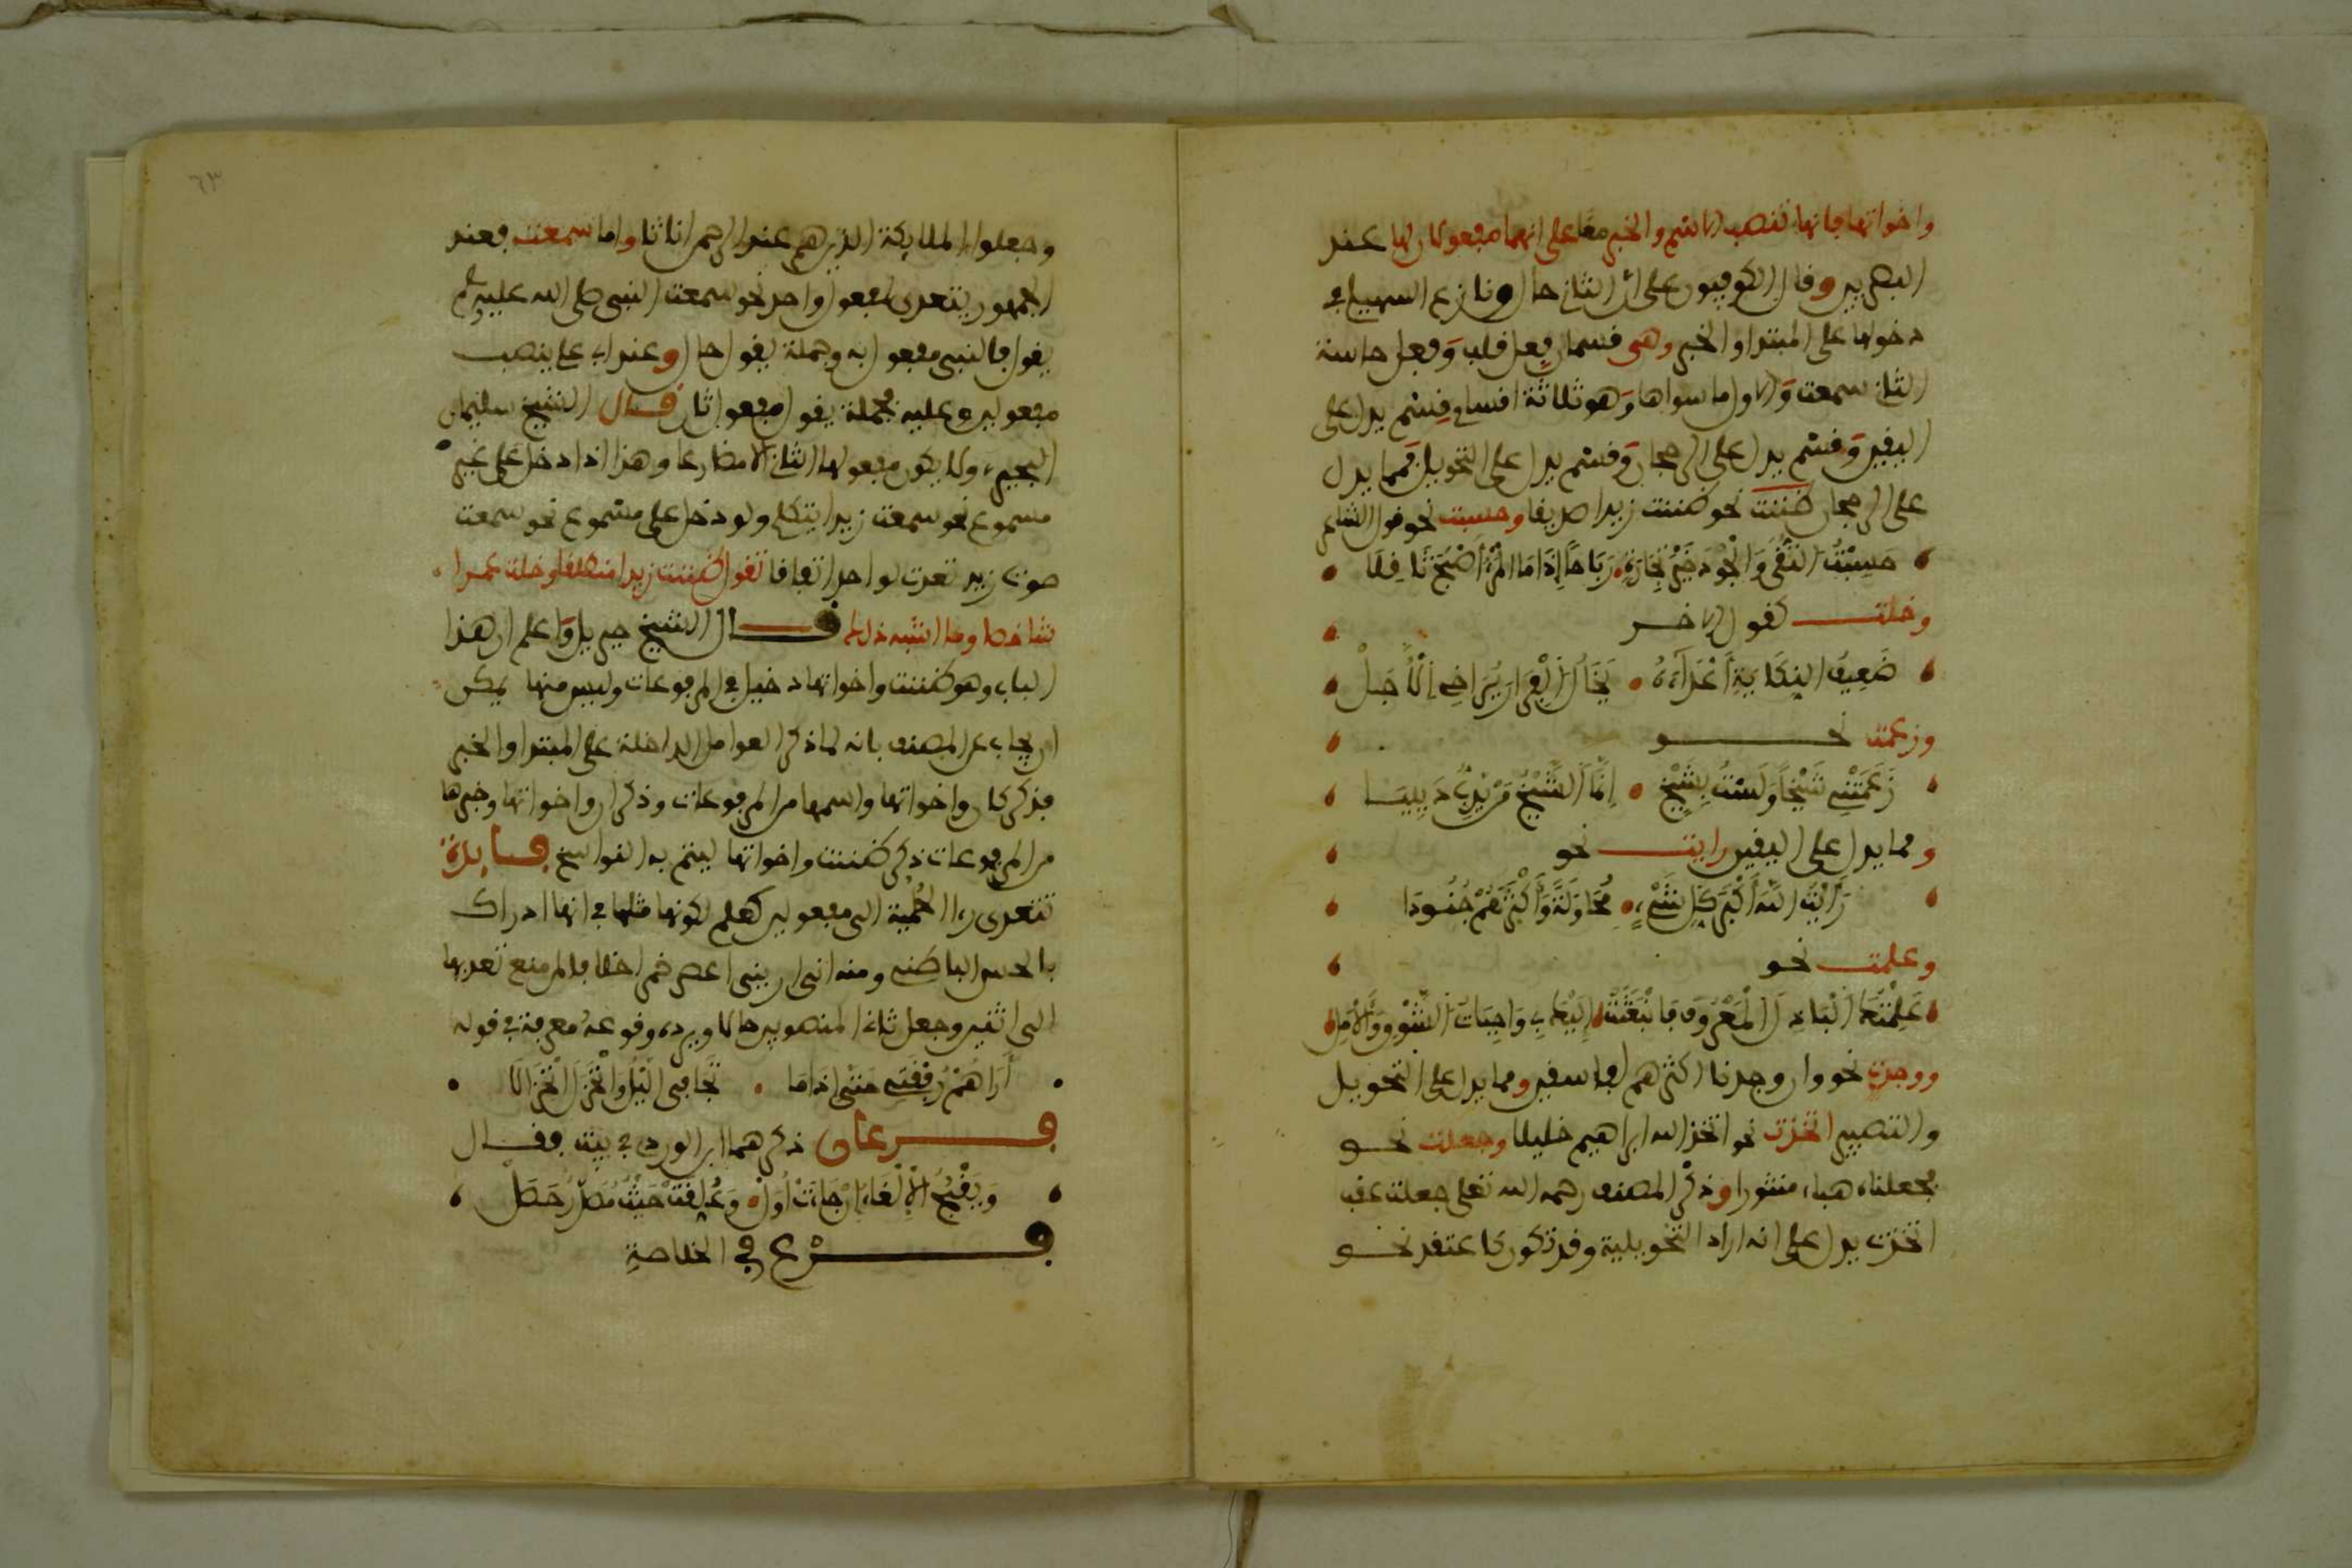 واخواتها فانها تنصب الاسم والخبر معا على انهما مفعولان لها عند
البصريين وقال الكوفيون على ان الثاني حال ونازع السهيلي في
دخولها على المبتدا والخبر وهي قسمان فعل قلب وفعل حاسة
الثاني سمعت والاول ما سواها وهو ثلاثة اقسام قسم يدل على
اليقين وقسم يدل على الرجحان وقسم يدل على التحويل فمما يدل
على الرجحان ظننت نحو ظننت زيدا صديقا وحسبت نحو قول الشاعر
حَسِبْتُ التُّقَى وَالْجُودَ خَيْرَ تِجَارَةٍ رَبَاحًا إِذَا مَا الْمَرْءُ أَصْبَحَ ثَاقِلَا
وخلت كقول الاخر
ضَعِيفُ النِّكَايَةِ أَعْدَاءَهُ يَخَالُ الْفِرَارَ يُرَاخِي الْأَجَلْ
وزعمت نحو
زَعَمَتْنِي شَيْخًا وَلَسْتُ بِشَيْخٍ إِنَّمَا الشَّيْخُ مَنْ يَدِبُّ دَبِيبَا
ومما يدل على اليقين رايت نحو
رَأَيْتُ اللَّهَ أَكْبَرَ كُلِّ شَيْءٍ مُحَاوَلَةً وَأَكْثَرَهُمْ جُنُودَا
وعلمت نحو
عَلِمْتُكَ الْبَاذِلَ الْمَعْرُوفَ فَانْبَعَثَتْ إِلَيْكَ بِي وَاجِبَاتُ الشَّوْقِ وَالْأَمَلِ
ووجدت نحو وان وجدنا اكثرهم لفاسقين ومما يدل على التحويل
والتصيير اتخذت نحو اتخذ الله ابراهيم خليلا وجعلت نحو
فجعلناه هباء منثورا وذكر المصنف رحمه الله تعلى جعلت عقب
اتخذت يدل على انه اراد التحويلية وقد تكون كاعتقد نحو
٦٣
وجعلوا الملايكة الذين هم عند الرحمن اناثا واما سمعت فعند
الجمهور يتعدى لمفعول واحد نحو سمعت النبي صلى الله عليه وسلم
يقول فالنبي مفعول به وجملة يقول حال وعند ابي علي ينصب
مفعولين وعليه فجملة يقول مفعول ثان قال الشيخ سليمان
البحيري ولا يكون مفعولها الثاني الا مضارعا وهذا اذا دخل على غير
مسموع نحو سمعت زيدا يتكلم ولو دخل على مسموع نحو سمعت
صوت زيد تعدت لواحد اتفاقا تقول ظننت زيدا منطلقا وخلت عمرا
شاخصا وما اشبه ذلك قال الشيخ جبريل واعلم ان هذا
الباب وهو ظننت واخواتها دخيل في المرفوعات وليس منها يمكن
ان يجاب عن المصنف بانه لما ذكر العوامل الداخلة على المبتدا والخبر
فذكر كان واخواتها واسمها من المرفوعات وذكر ان واخواتها وخبرها
من المرفوعات ذكر ظننت واخواتها ليتم به النواسخ فايدة
تتعدى راى الحلمية الى مفعولين كعلم لكونها مثلها في انها ادراك
بالحس الباطني ومنه اني اراني اعصر خمرا خلافا لمن منع تعديها
الى اثنين وجعل ثاني المنصوبين حالا ويرده وقوعه معرفة في قوله
أَرَاهُمْ رُفْقَتِي حَتَّى إِذَا مَا تَجَافَى اللَّيْلُ وَانْخَزَلَ انْخِزَالَا
فرعان ذكرهما ابن الوردي في بيت فقال
وَيَقْبُحُ الْإِلْغَاءُ إِنْ جَاءَتْ أُوَلْ وَعُلِّقَتْ حَيْثُ مُصَدَّرٌ حَصَلْ
فرع في الخلاصة